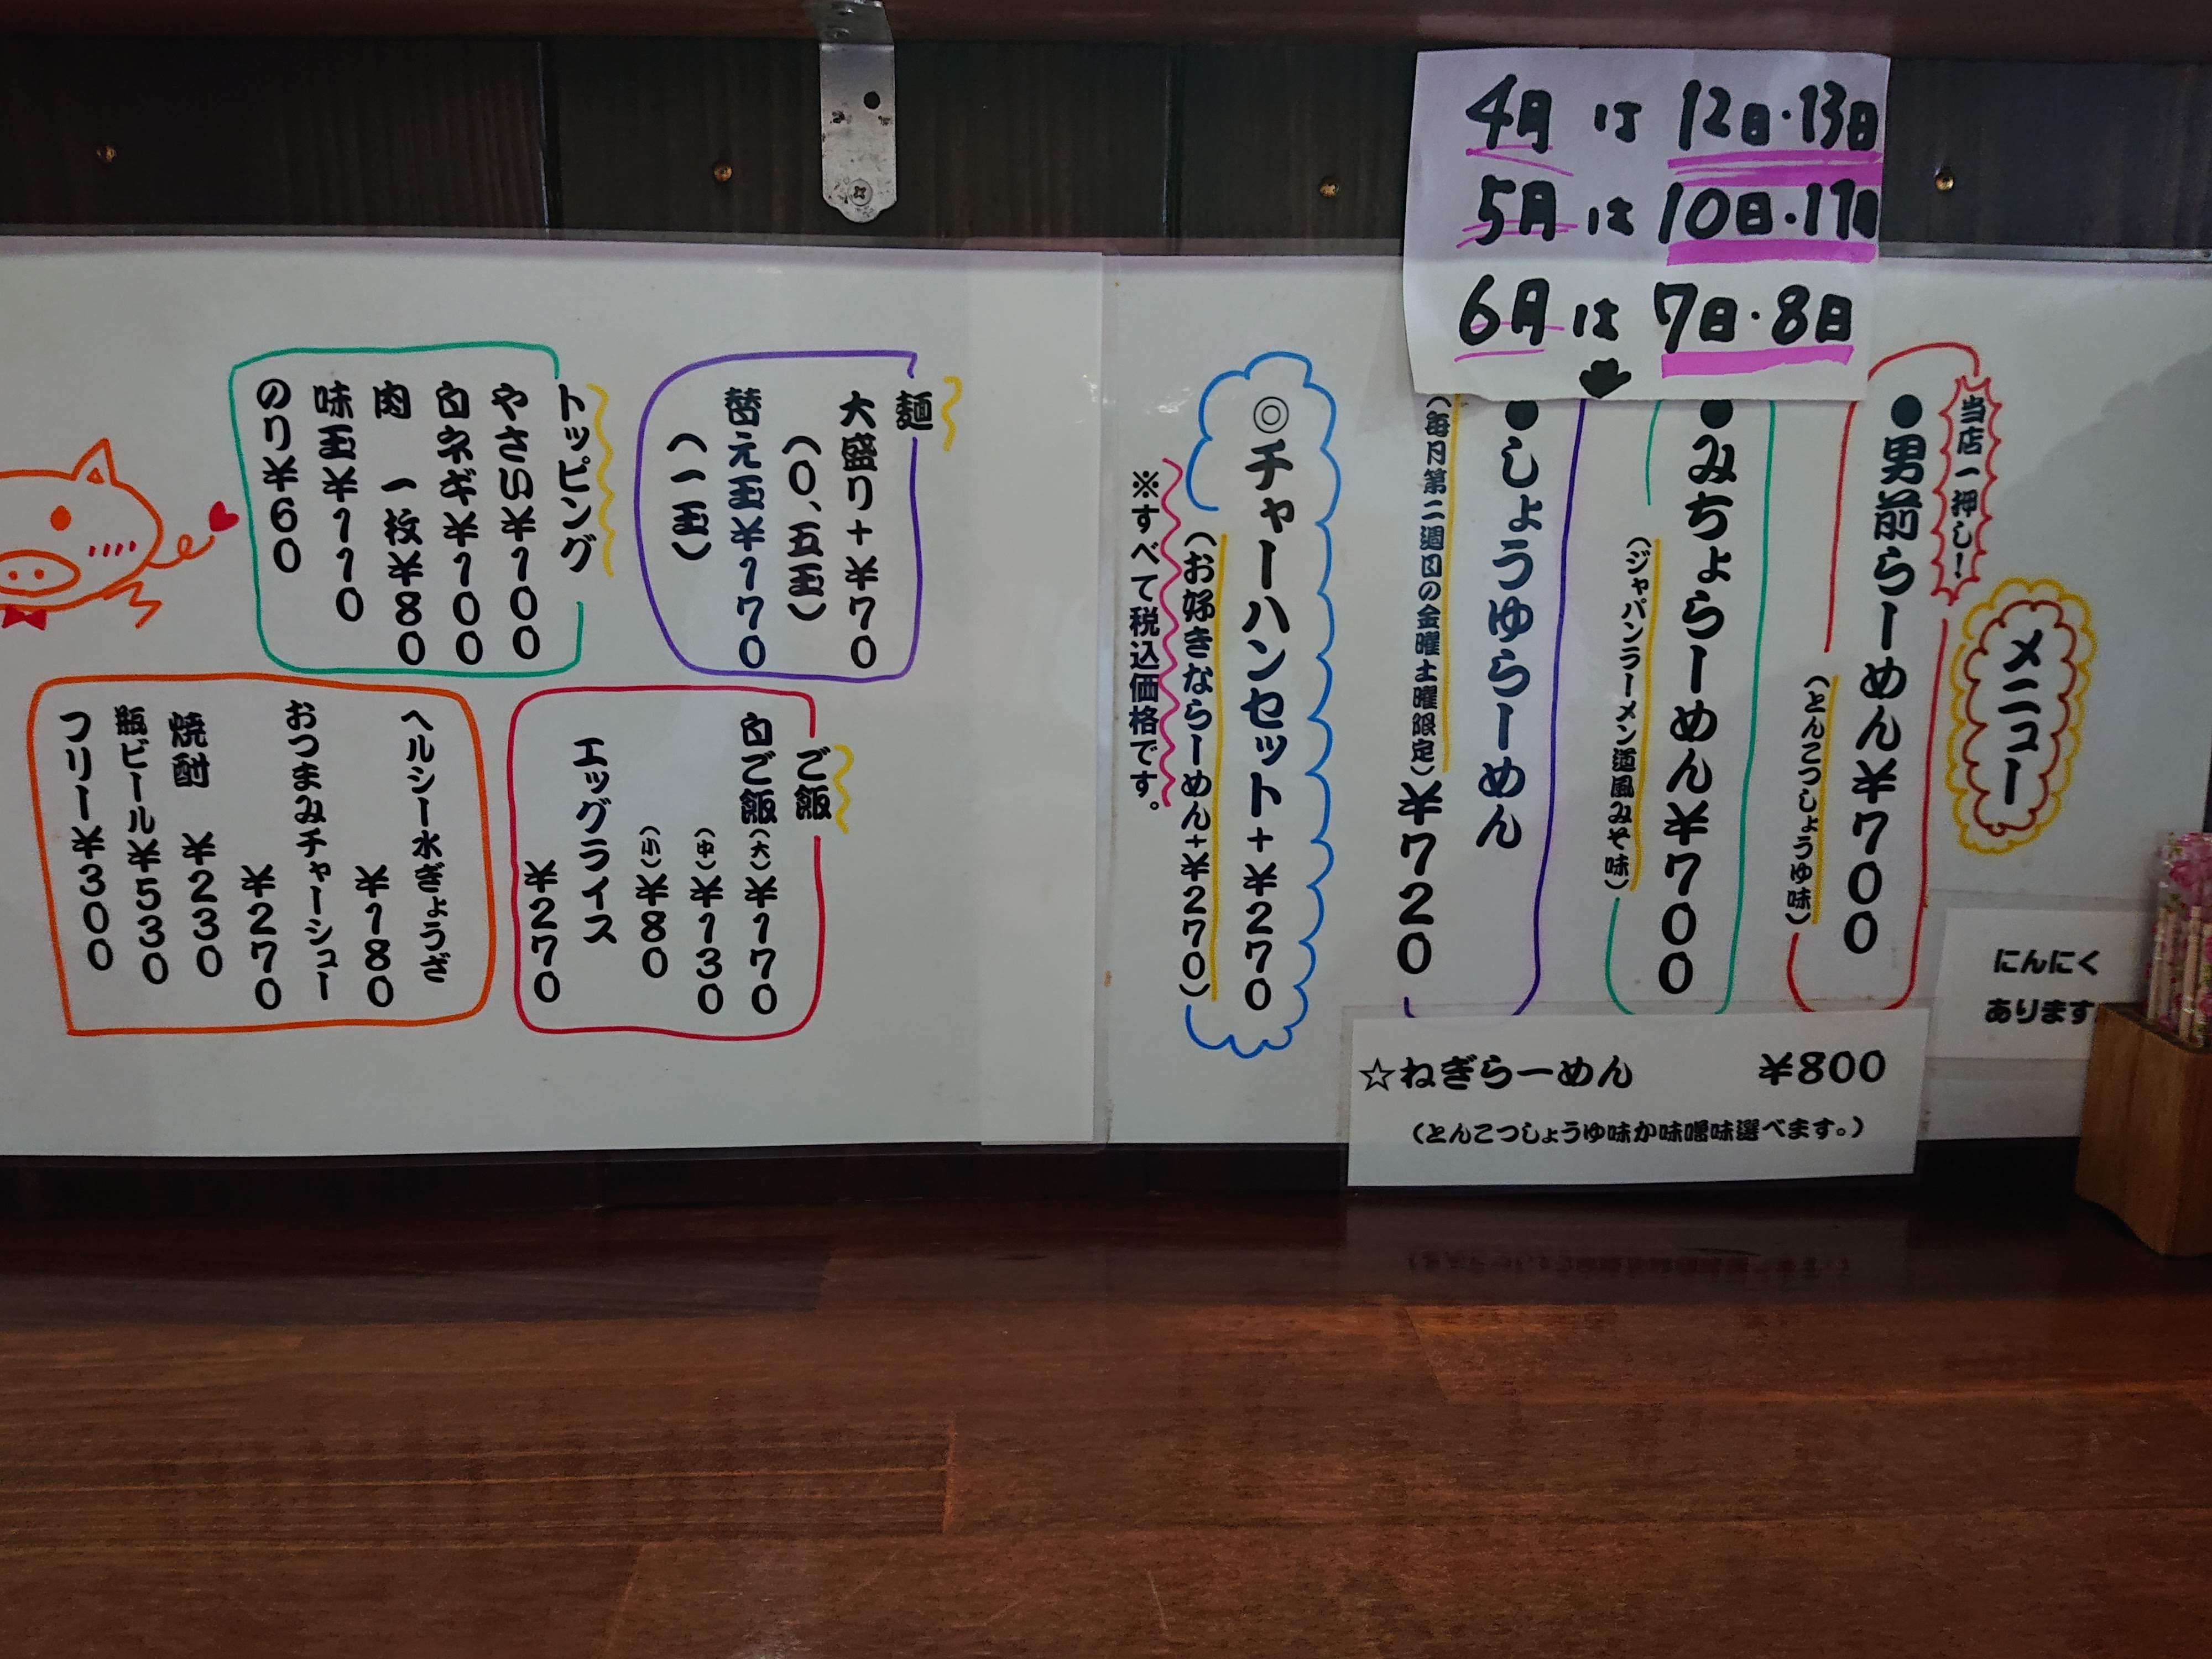 4月は12日・13日
5月は10日・11日
6月は7日・8日
メニュー
当店一押し!
●男前らーめん¥700
(とんこつしょうゆ味)
●みちょらーめん¥700
(ジャパンラーメン道風みそ味)
●しょうゆらーめん
(毎月第二週目の金曜土曜限定)¥720
◎チャーハンセット+¥270
(お好きならーめん+¥270)
※すべて税込価格です。
☆ねぎらーめん ¥800
(とんこつしょうゆ味か味噌味選べます。)
にんにく
あります
麺
大盛り+¥70
(0、五玉)
替え玉¥170
(一玉)
トッピング
やさい¥100
白ネギ¥100
肉 一枚¥80
味玉¥110
のり¥60
ご飯
白ご飯(大)¥170
(中)¥130
(小)¥80
エッグライス
¥270
ヘルシー水ぎょうざ
¥180
おつまみチャーシュー
¥270
焼酎 ¥230
瓶ビール¥530
フリー¥300